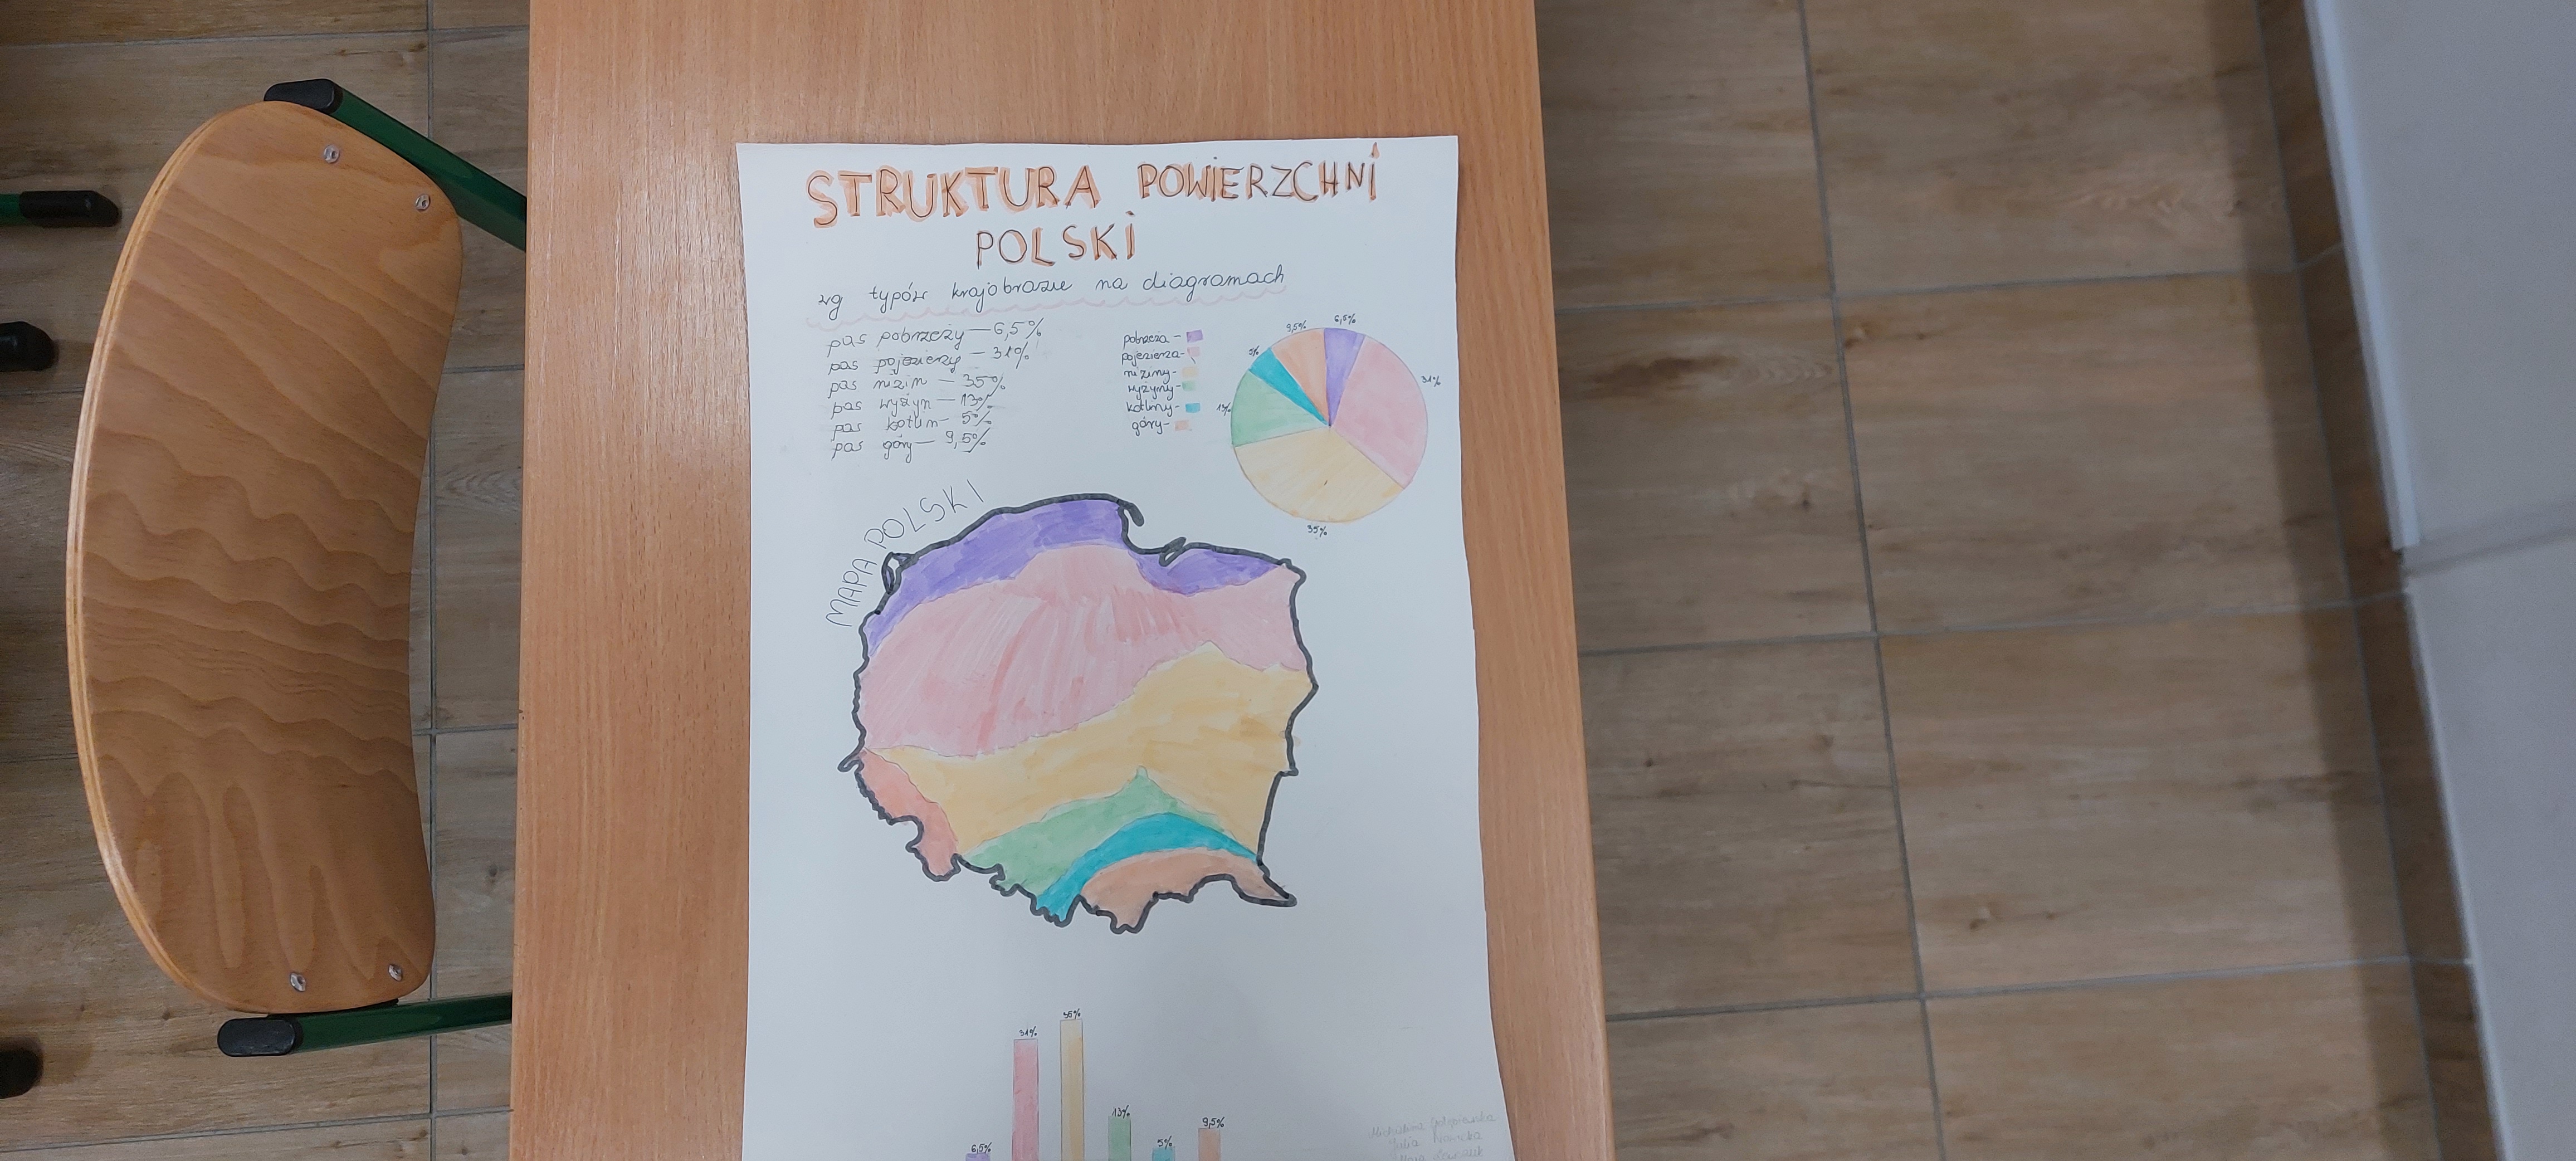 STRUKTURA POWIERZCHNI
POLSKI
wg typów krajobrazu na diagramach
pas pobrzeży — 6,5%
pas pojezierzy — 31%
pas nizin — 35%
pas wyżyn — 13%
pas kotlin — 5%
pas góry — 9,5%
pobrzeża -
pojezierza -
niziny -
wyżyny -
kotliny -
góry -
9,5%
6,5%
5%
31%
13%
35%
MAPA POLSKI
35%
31%
13%
9,5%
5%
6,5%
Julia
Maja